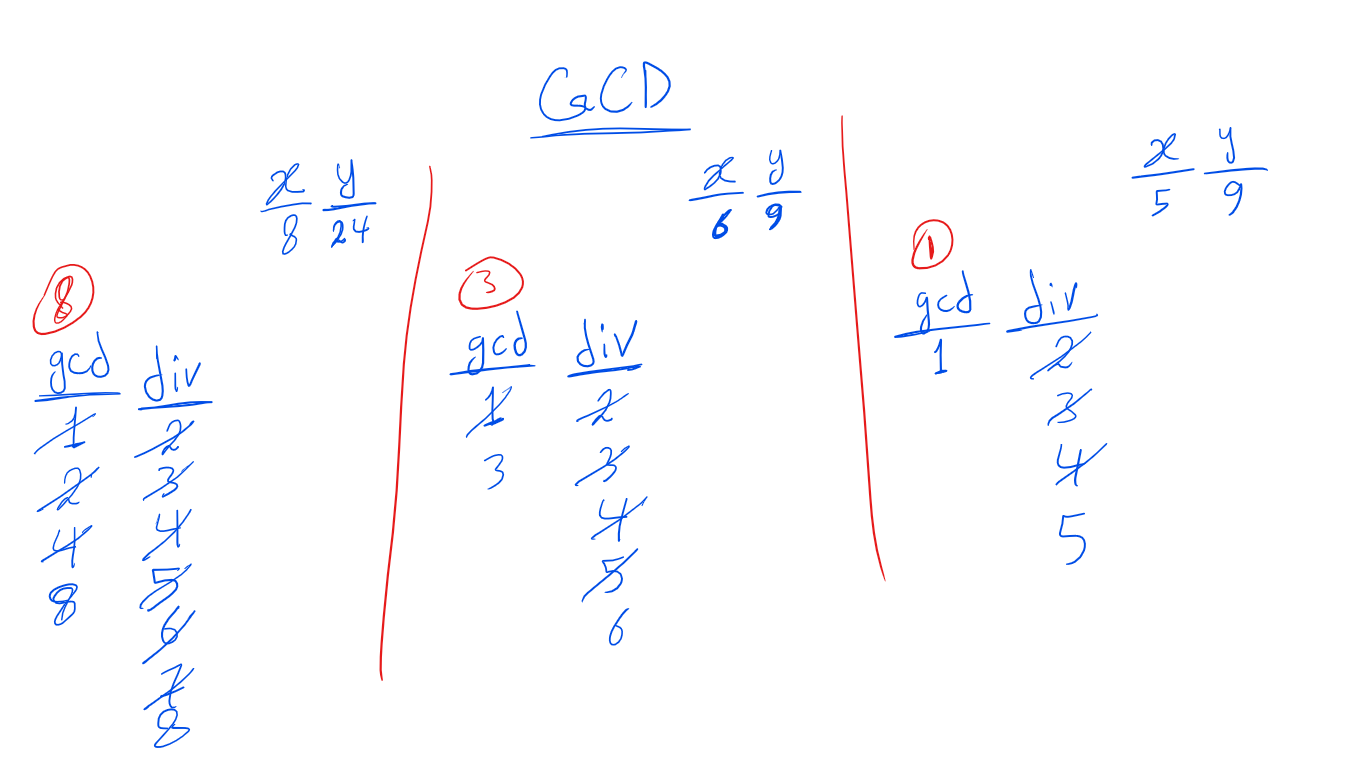 GCD
x y
8 24
8
gcd div
1 2
2 3
4 4
8 5
6
7
8
x y
6 9
3
gcd div
1 2
3 3
4
5
6
x y
5 9
1
gcd div
1 2
3
4
5